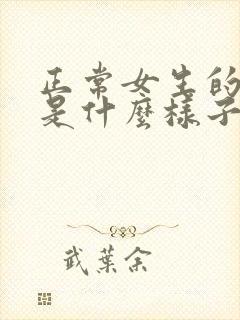 正常女生的
是什麼樣子
武葉余